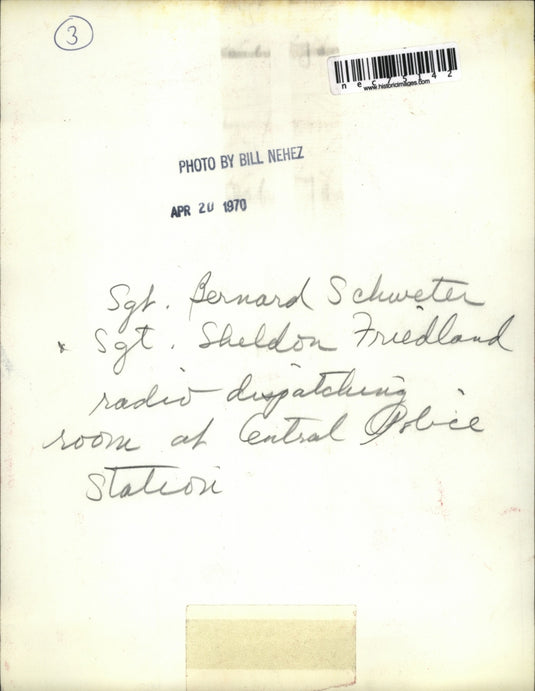 3
www.historicimages.com
PHOTO BY BILL NEHEZ
APR 20 1970
Sgt. Bernard Schweter
x Sgt. Sheldon Friedland
radio dispatching
room at Central Police
Station